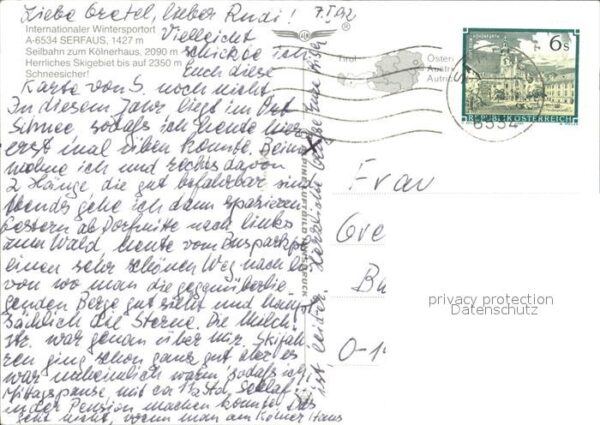 Liebe Gretel, lieber Rudi! 7.I.92
Internationaler Wintersportort
A-6534 SERFAUS, 1427 m
Seilbahn zum Kölnerhaus, 2090 m
Herrliches Skigebiet bis auf 2350 m
Schneesicher!
Vielleicht
schicke ich
Euch diese
Karte von S. noch nicht
In diesem Jahr liegt im Ort
Schnee sodaß ich heute hier
erst mal üben konnte. Beim
wohne ich und rechts davon
2 Hänge die gut befahrbar sind
Abends gehe ich dann spazieren
gestern ab Dorfmitte nach links
zum Wald heute vom Busparkpl.
einen sehr schönen Weg nach
von wo man die gegenüberlie-
genden Berge gut sieht und haupt-
sächlich die Sterne. Die Milch-
str. war genau über mir. Skifah-
ren ging schon ganz gut aber es
war unheimlich warm sodaß ich
Mittagspause, mit ca 1 Std. Schlaf
in der Pension machen konnte. Das
geht nicht, wenn man am Kölner Haus
ist leider. Herzliche Grüße Eure
ALPINE LUFTBILD INNSBRUCK
Tirol
Öster
Austri
Autric
6534
6 S
REPUBLIK ÖSTERREICH
Frau
Gre
Ba
O-1
privacy protection
Datenschutz